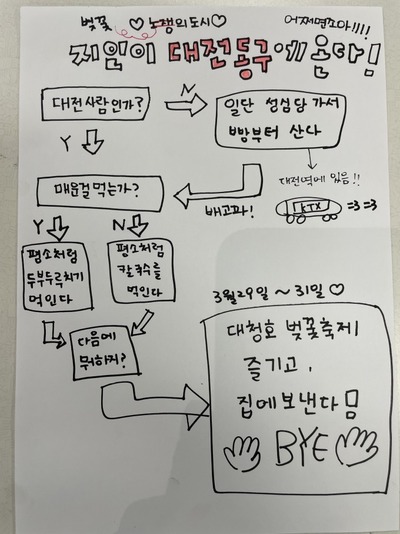 벚꽃 ♡ 노잼의도시♡
어쩌면조아!!!!
지인이 대전동구에 온다면
대전사람인가?
N
일단 성심당 가서
빵부터 산다
Y
대전역에 있음!!
KTX =3=3
매운걸먹는가?
배고파!
Y
N
평소처럼
두부두루치기
먹인다
평소처럼
칼국수를
먹인다
다음에
뭐하지?
3월29일 ~ 31일 ♡
대청호 벚꽃축제
즐기고,
집에보낸다
BYE